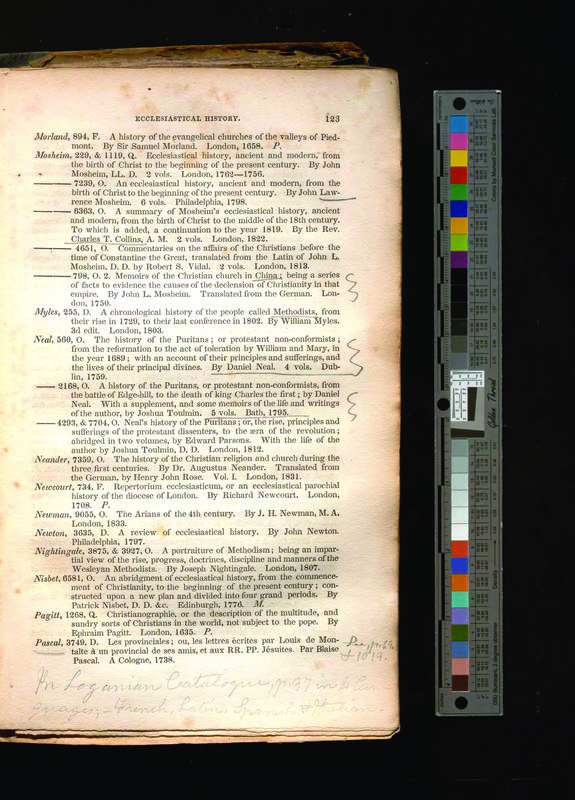 ECCLESIASTICAL HISTORY. 123
Morland, 894, F. A history of the evangelical churches of the valleys of Pied-
mont. By Sir Samuel Morland. London, 1658. P.
Mosheim, 229, & 1119, Q. Ecclesiastical history, ancient and modern, from
the birth of Christ to the beginning of the present century. By John
Mosheim, LL. D. 2 vols. London, 1762—1756.
——— 7239, O. An ecclesiastical history, ancient and modern, from the
birth of Christ to the beginning of the present century. By John Law-
rence Mosheim. 6 vols. Philadelphia, 1798.
——— 6363, O. A summary of Mosheim's ecclesiastical history, ancient
and modern, from the birth of Christ to the middle of the 18th century.
To which is added, a continuation to the year 1819. By the Rev.
Charles T. Collins, A. M. 2 vols. London, 1822.
——— 4651, O. Commentaries on the affairs of the Christians before the
time of Constantine the Great, translated from the Latin of John L.
Mosheim, D. D. by Robert S. Vidal. 2 vols. London, 1813.
——— 798, O. 2. Memoirs of the Christian church in China; being a series
of facts to evidence the causes of the declension of Christianity in that
empire. By John L. Mosheim. Translated from the German. Lon-
don, 1750.
Myles, 255, D. A chronological history of the people called Methodists, from
their rise in 1729, to their last conference in 1802. By William Myles.
3d edit. London, 1803.
Neal, 560, O. The history of the Puritans; or protestant non-conformists;
from the reformation to the act of toleration by William and Mary, in
the year 1689; with an account of their principles and sufferings, and
the lives of their principal divines. By Daniel Neal. 4 vols. Dub-
lin, 1759.
—— 2168, O. A history of the Puritans, or protestant non-conformists, from
the battle of Edge-hill, to the death of king Charles the first; by Daniel
Neal. With a supplement, and some memoirs of the life and writings
of the author, by Joshua Toulmin. 5 vols. Bath, 1795.
—— 4293, & 7704, O. Neal's history of the Puritans; or, the rise, principles and
sufferings of the protestant dissenters, to the æra of the revolution;
abridged in two volumes, by Edward Parsons. With the life of the
author by Joshua Toulmin, D. D. London, 1812.
Neander, 7359, O. The history of the Christian religion and church during the
three first centuries. By Dr. Augustus Neander. Translated from
the German, by Henry John Rose. Vol. I. London, 1831.
Newcourt, 734, F. Repertorium ecclesiasticum, or an ecclesiastical parochial
history of the diocese of London. By Richard Newcourt. London,
1708. P.
Newman, 9055, O. The Arians of the 4th century. By J. H. Newman, M. A.
London, 1833.
Newton, 3635, D. A review of ecclesiastical history. By John Newton.
Philadelphia, 1797.
Nightingale, 3875, & 3927, O. A portraiture of Methodism; being an impar-
tial view of the rise, progress, doctrines, discipline and manners of the
Wesleyan Methodists. By Joseph Nightingale. London, 1807.
Nisbet, 6581, O. An abridgment of ecclesiastical history, from the commence-
ment of Christianity, to the beginning of the present century; con-
structed upon a new plan and divided into four grand periods. By
Patrick Nisbet, D. D. &c. Edinburgh, 1776. M.
Pagitt, 1268, Q. Christianographie, or the description of the multitude, and
sundry sorts of Christians in the world, not subject to the pope. By
Ephraim Pagitt. London, 1635. P.
Pascal, 3749, D. Les provinciales; ou, les lettres écrites par Louis de Mon-
talte à un provincial de ses amis, et aux RR. PP. Jésuites. Par Blaise
Pascal. A Cologne, 1738.
In Loganian Catalogue, p. 37 in 4 lan
guages,—French, Latin, Spanish, & Italian.